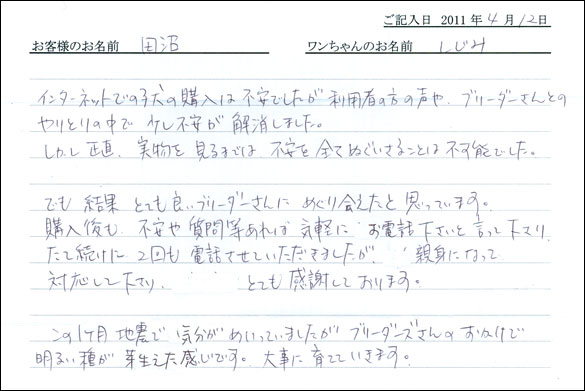 ご記入日 2011年4月12日
お客様のお名前 田沼 ワンちゃんのお名前 しじみ
インターネットでの子犬の購入は不安でしたが利用者の方の声や、ブリーダーさんとの
やりとりの中で少し不安が解消しました。
しかし正直、実物を見るまでは不安を全てぬぐいさることは不可能でした。
でも結果とても良いブリーダーさんにめぐり会えたと思っています。
購入後も、不安や質問等あれば気軽にお電話下さいと言って下さり、
たて続けに2回も電話させていただきましたが、親身になって
対応して下さり、とても感謝しております。
この1ケ月地震で気分がめいっていましたがブリーダーズさんのおかげで
明るい種が芽生えた感じです。大事に育てていきます。